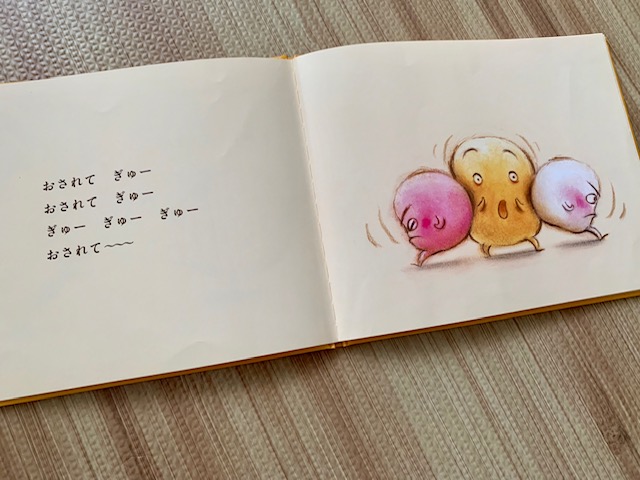 おされて　ぎゅー
おされて　ぎゅー
ぎゅー　ぎゅー　ぎゅー
おされて〜〜